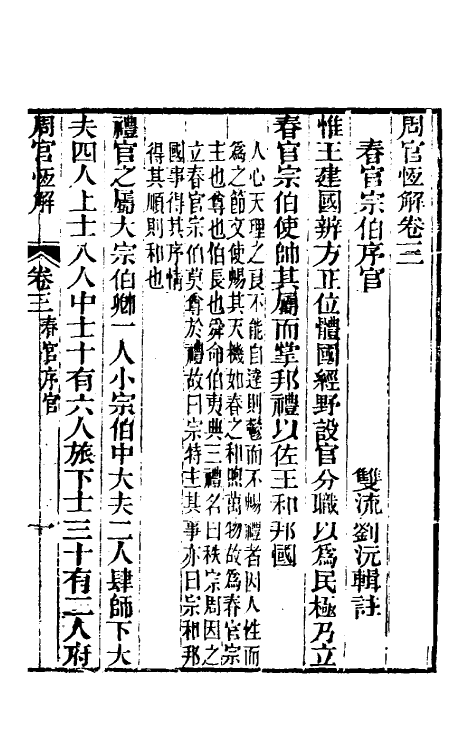 周官恆解卷三
春官宗伯序官
雙流劉沅輯註
惟王建國辨方正位體國經野設官分職以為民極乃立
春官宗伯使帥其屬而掌邦禮以佐王和邦國
人心天理之良不能自達則鬱而不暢禮者因人性而
為之節文使暢其天機如春之和煦萬物故為春官宗
主也尊也伯長也舜命伯夷典三禮名曰秩宗周因之
立春官宗伯莫尊於禮故曰宗特主其事亦曰宗和邦
國事得其序情
得其順則和也
禮官之屬大宗伯卿一人小宗伯中大夫二人肆師下大
夫四人上士八人中士十有六人旅下士三十有二人府
周官恆解
卷三
春官序官
一